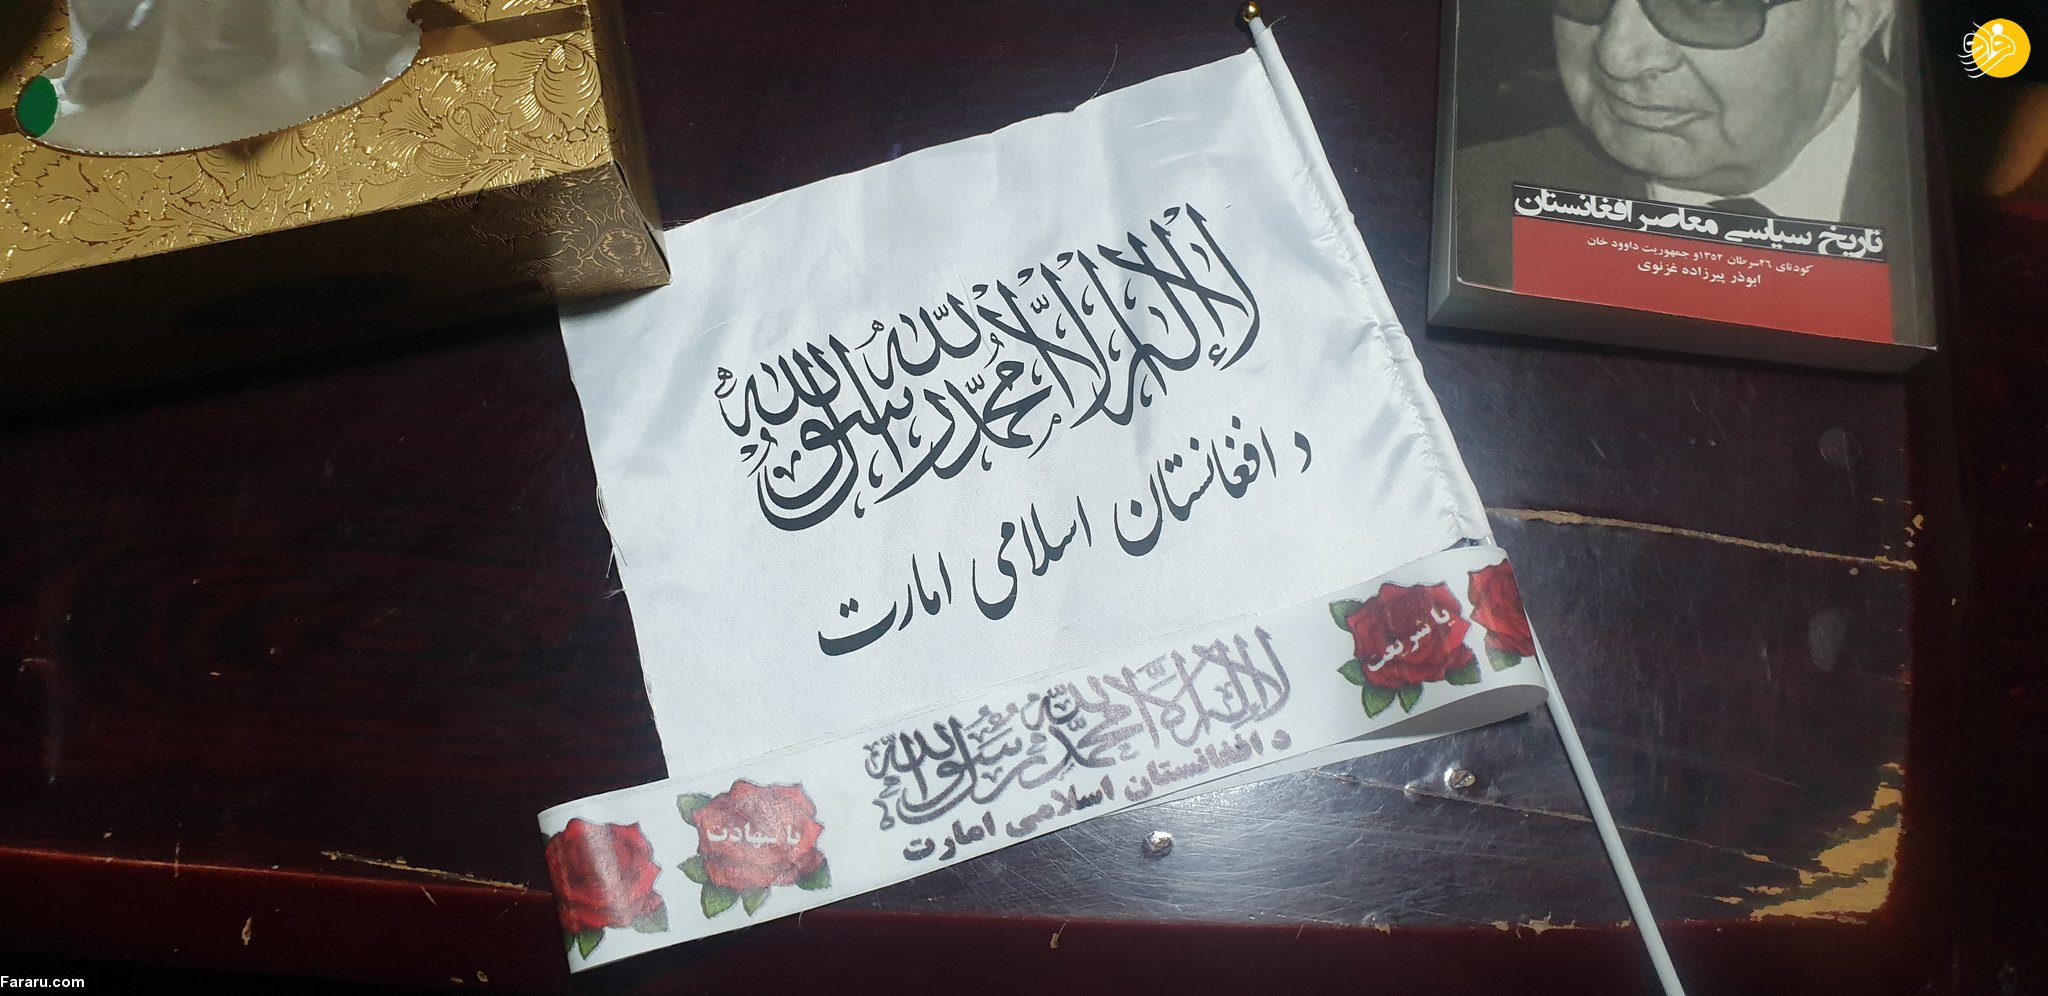 لا إله إلا الله محمد رسول الله
د افغانستان اسلامی امارت
لا إله إلا الله محمد رسول الله
د افغانستان اسلامی امارت
یا شریعت
یا شهادت
تاریخ سیاسی معاصر افغانستان
کودتای ۲۶سرطان ۱۳۵۲و جمهوریت داوود خان
ابوذر پیرزاده غزنوی
فرارو
Fararu.com